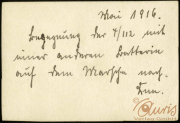 Mai 1916.
Begegnung der 4/112 mit
einer anderen Batterie
auf dem Marsche nach